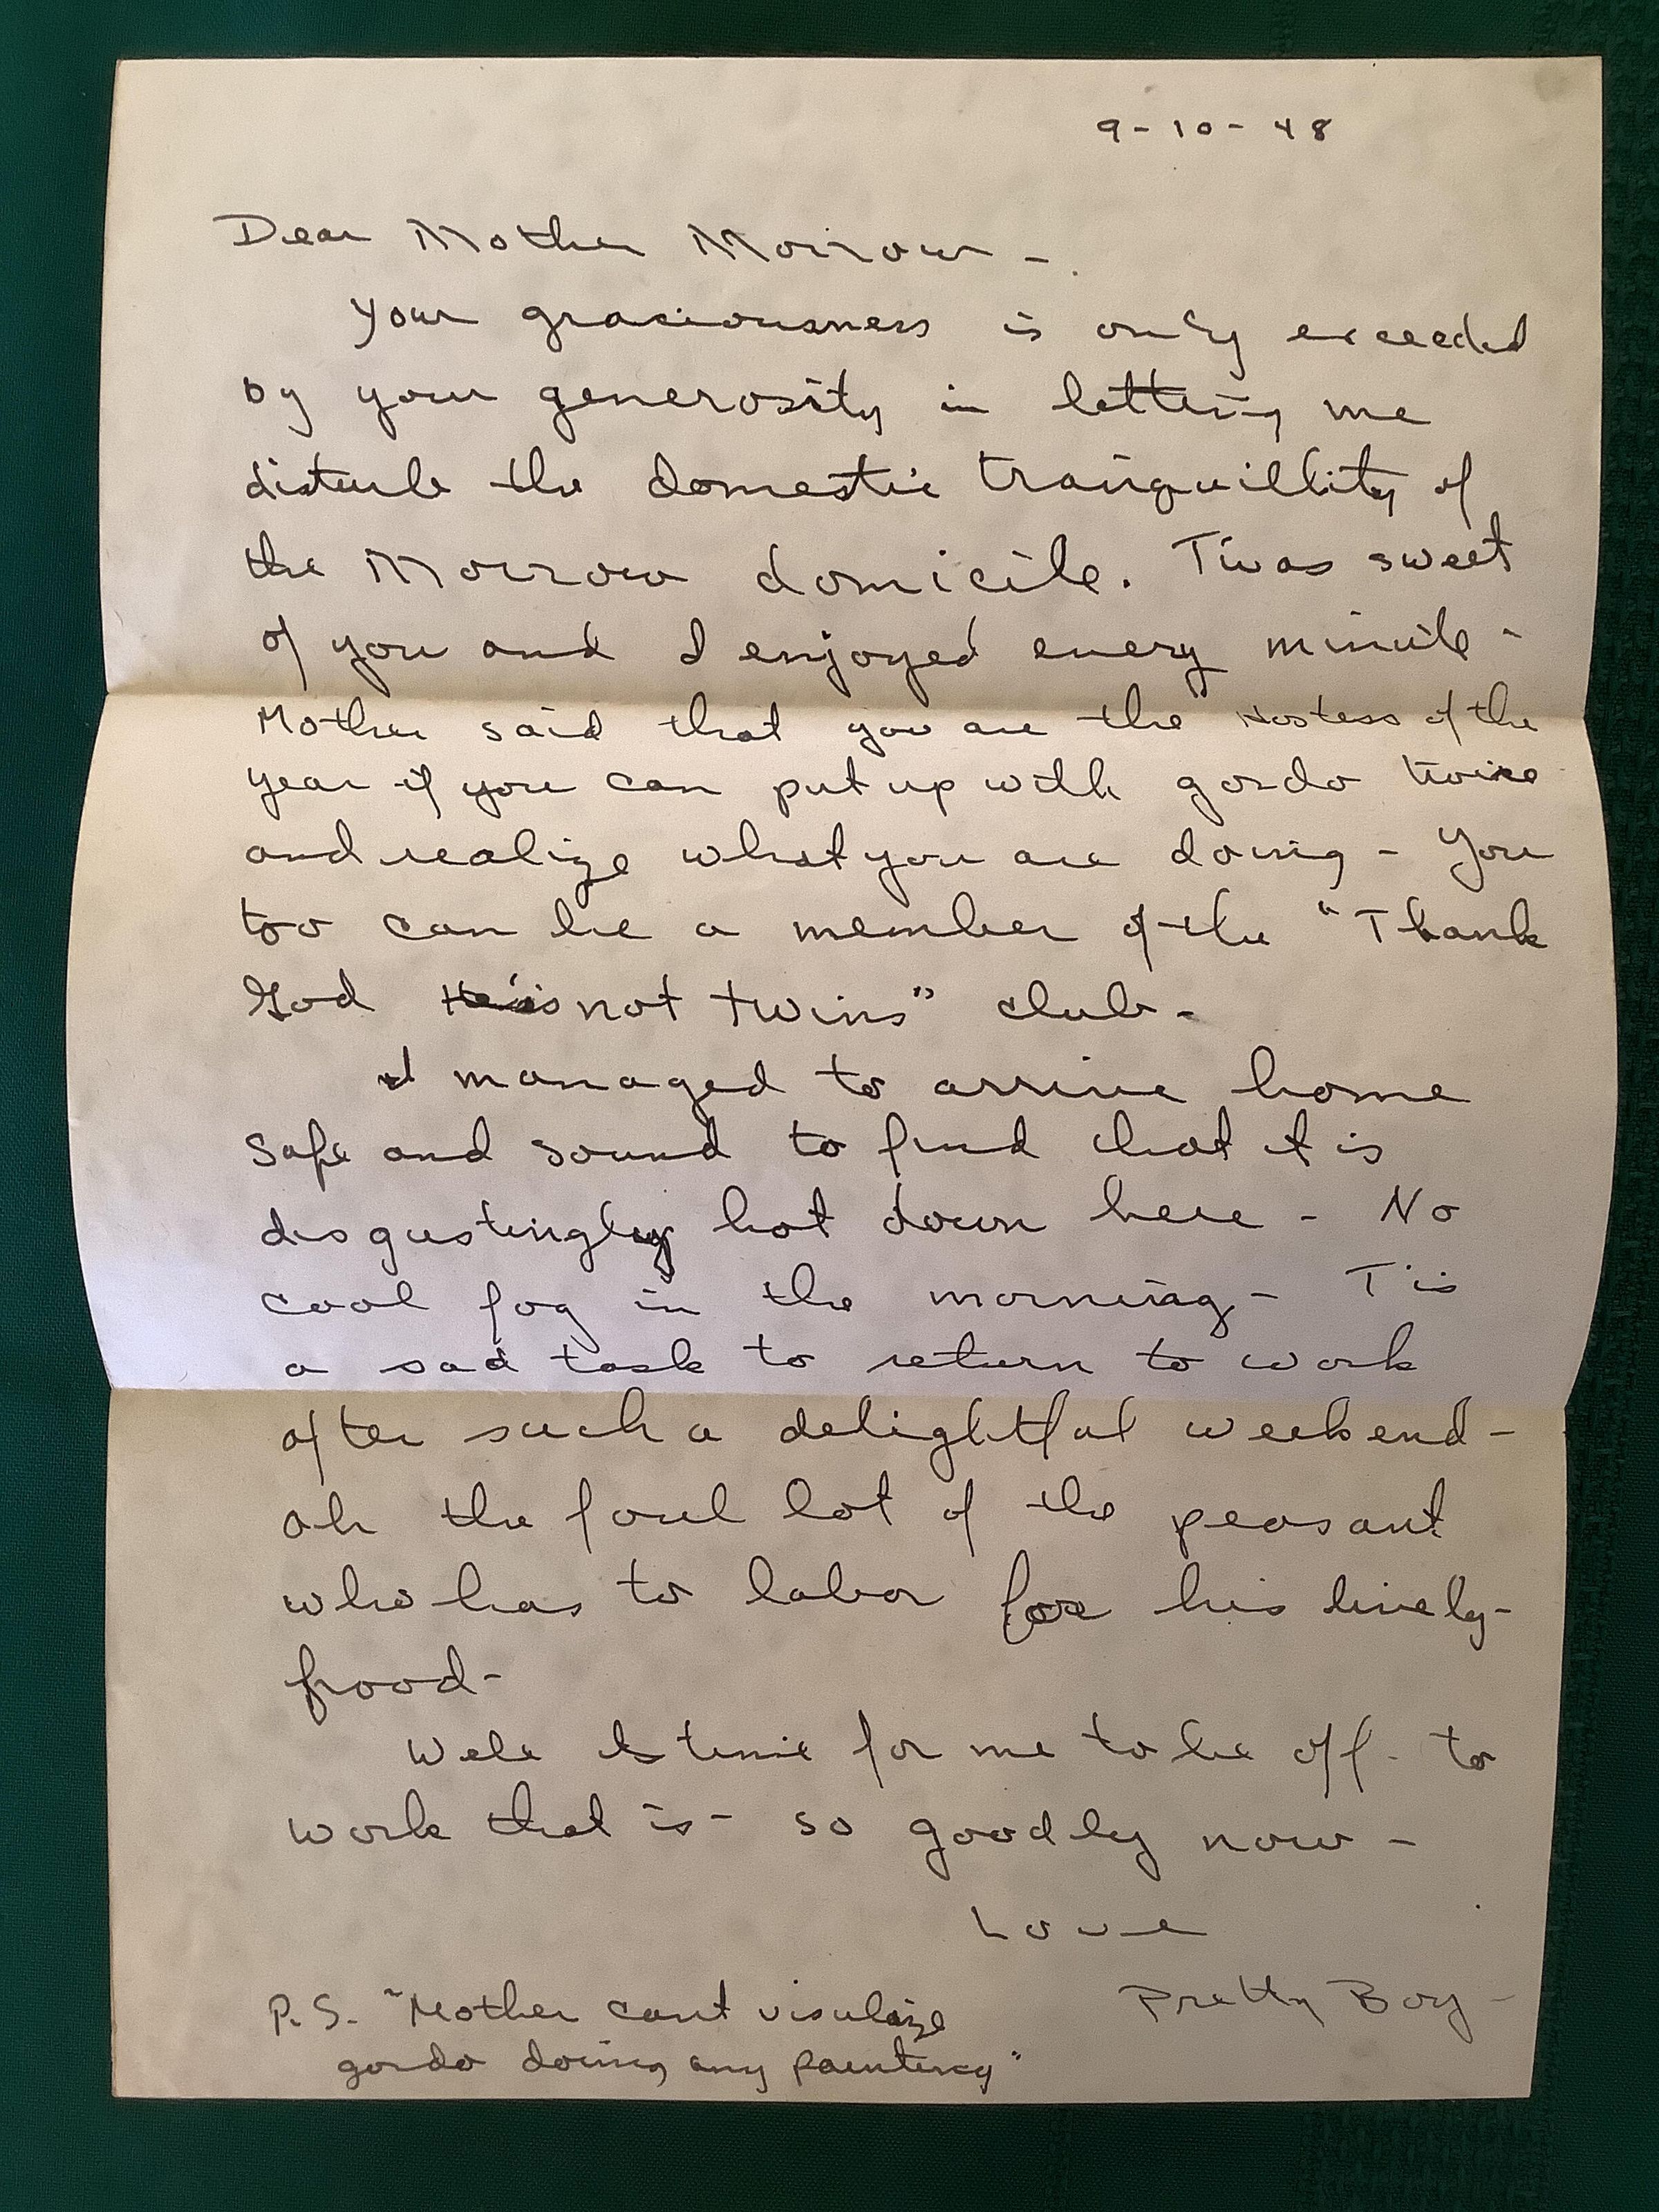 9-10-48
Dear Mother Morrow -
Your graciousness is only exceeded
by your generosity in letting me
disturb the domestic tranquillity of
the Morrow domicile. Twas sweet
of you and I enjoyed every minute -
Mother said that you are the Hostess of the
year if you can put up with gordo twice
and realize what you are doing - You
too can be a member of the "Thank
God He's not twins" club -
I managed to arrive home
safe and sound to find that it is
disgustingly hot down here - No
cool fog in the morning - T'is
a sad task to return to work
after such a delightful weekend -
oh the foul lot of the peasant
who has to labor for his lively-
hood -
Well its time for me to be off - to
work that is - so goodby now -
Love
Pretty Boy -
P.S. "Mother cant visulaize
gordo doing any painting"